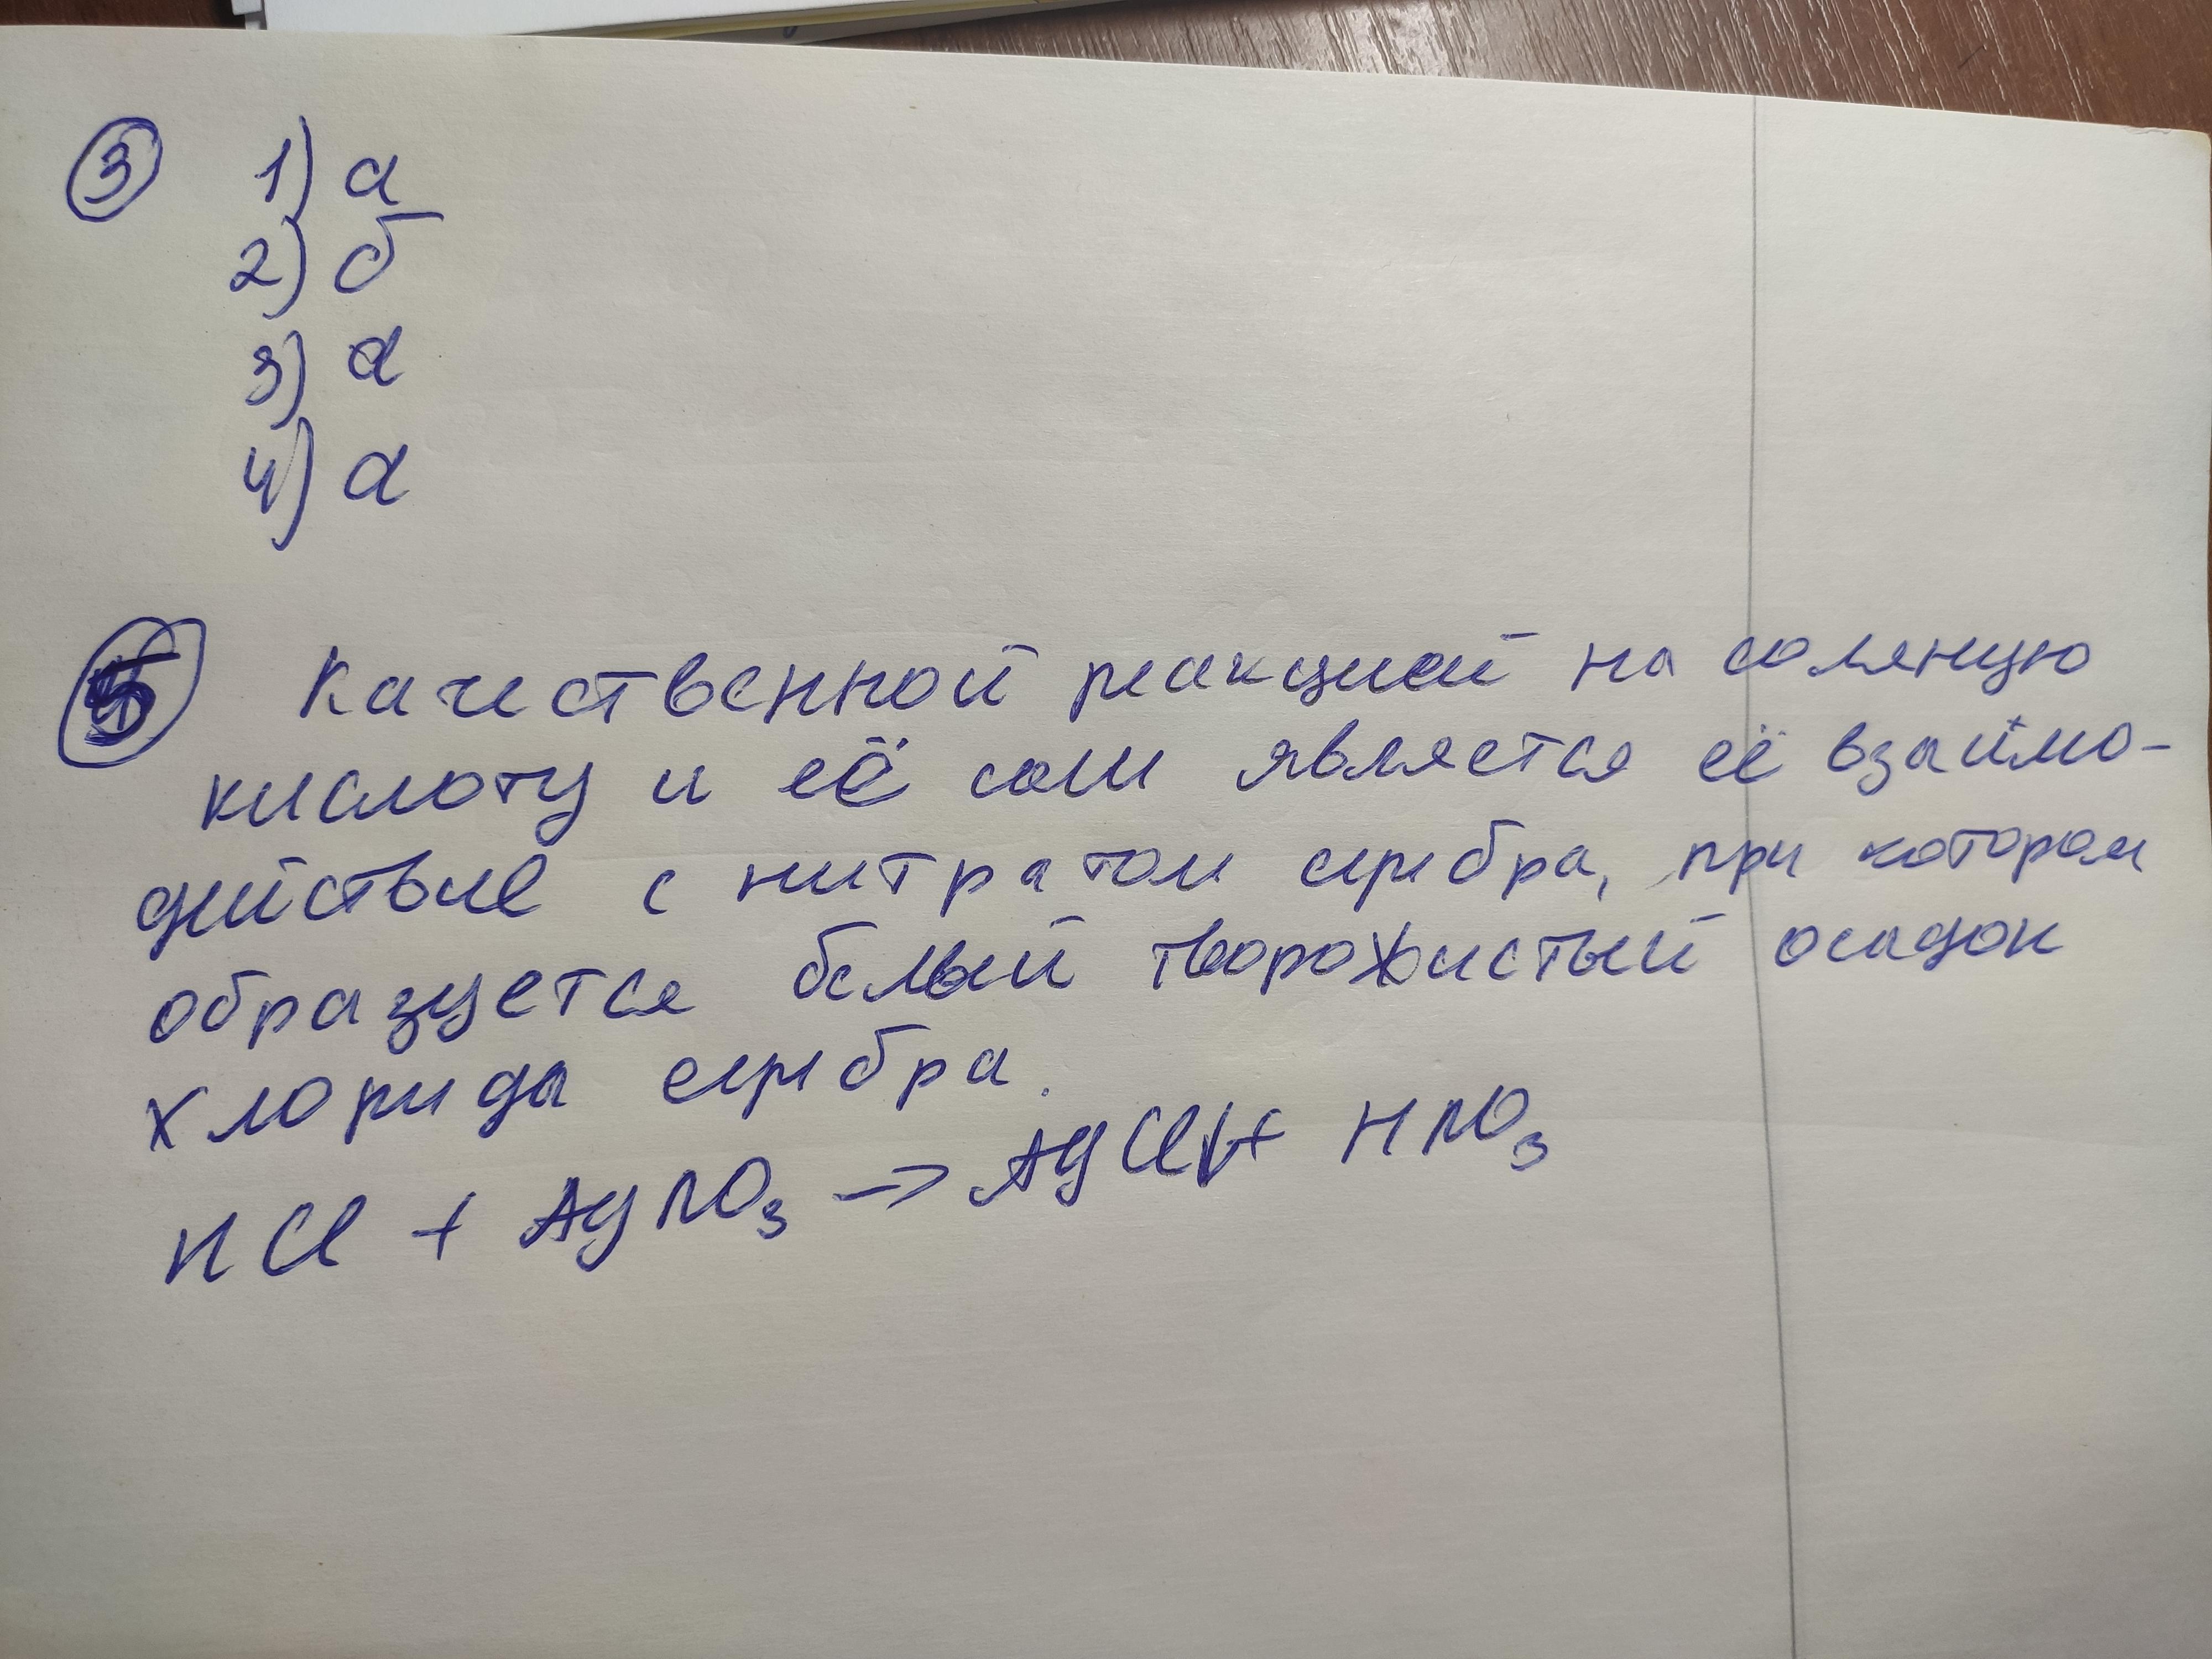 3 1) а
2) б
3) а
4) а
5 Качественной реакцией на соляную
кислоту и её соли является её взаимо-
действие с нитратом серебра, при котором
образуется белый творожистый осадок
хлорида серебра.
HCl + AgNO₃ → AgCl↓ + HNO₃